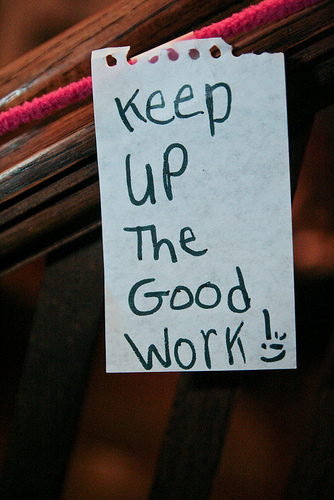 Keep
UP
The
Good
Work!